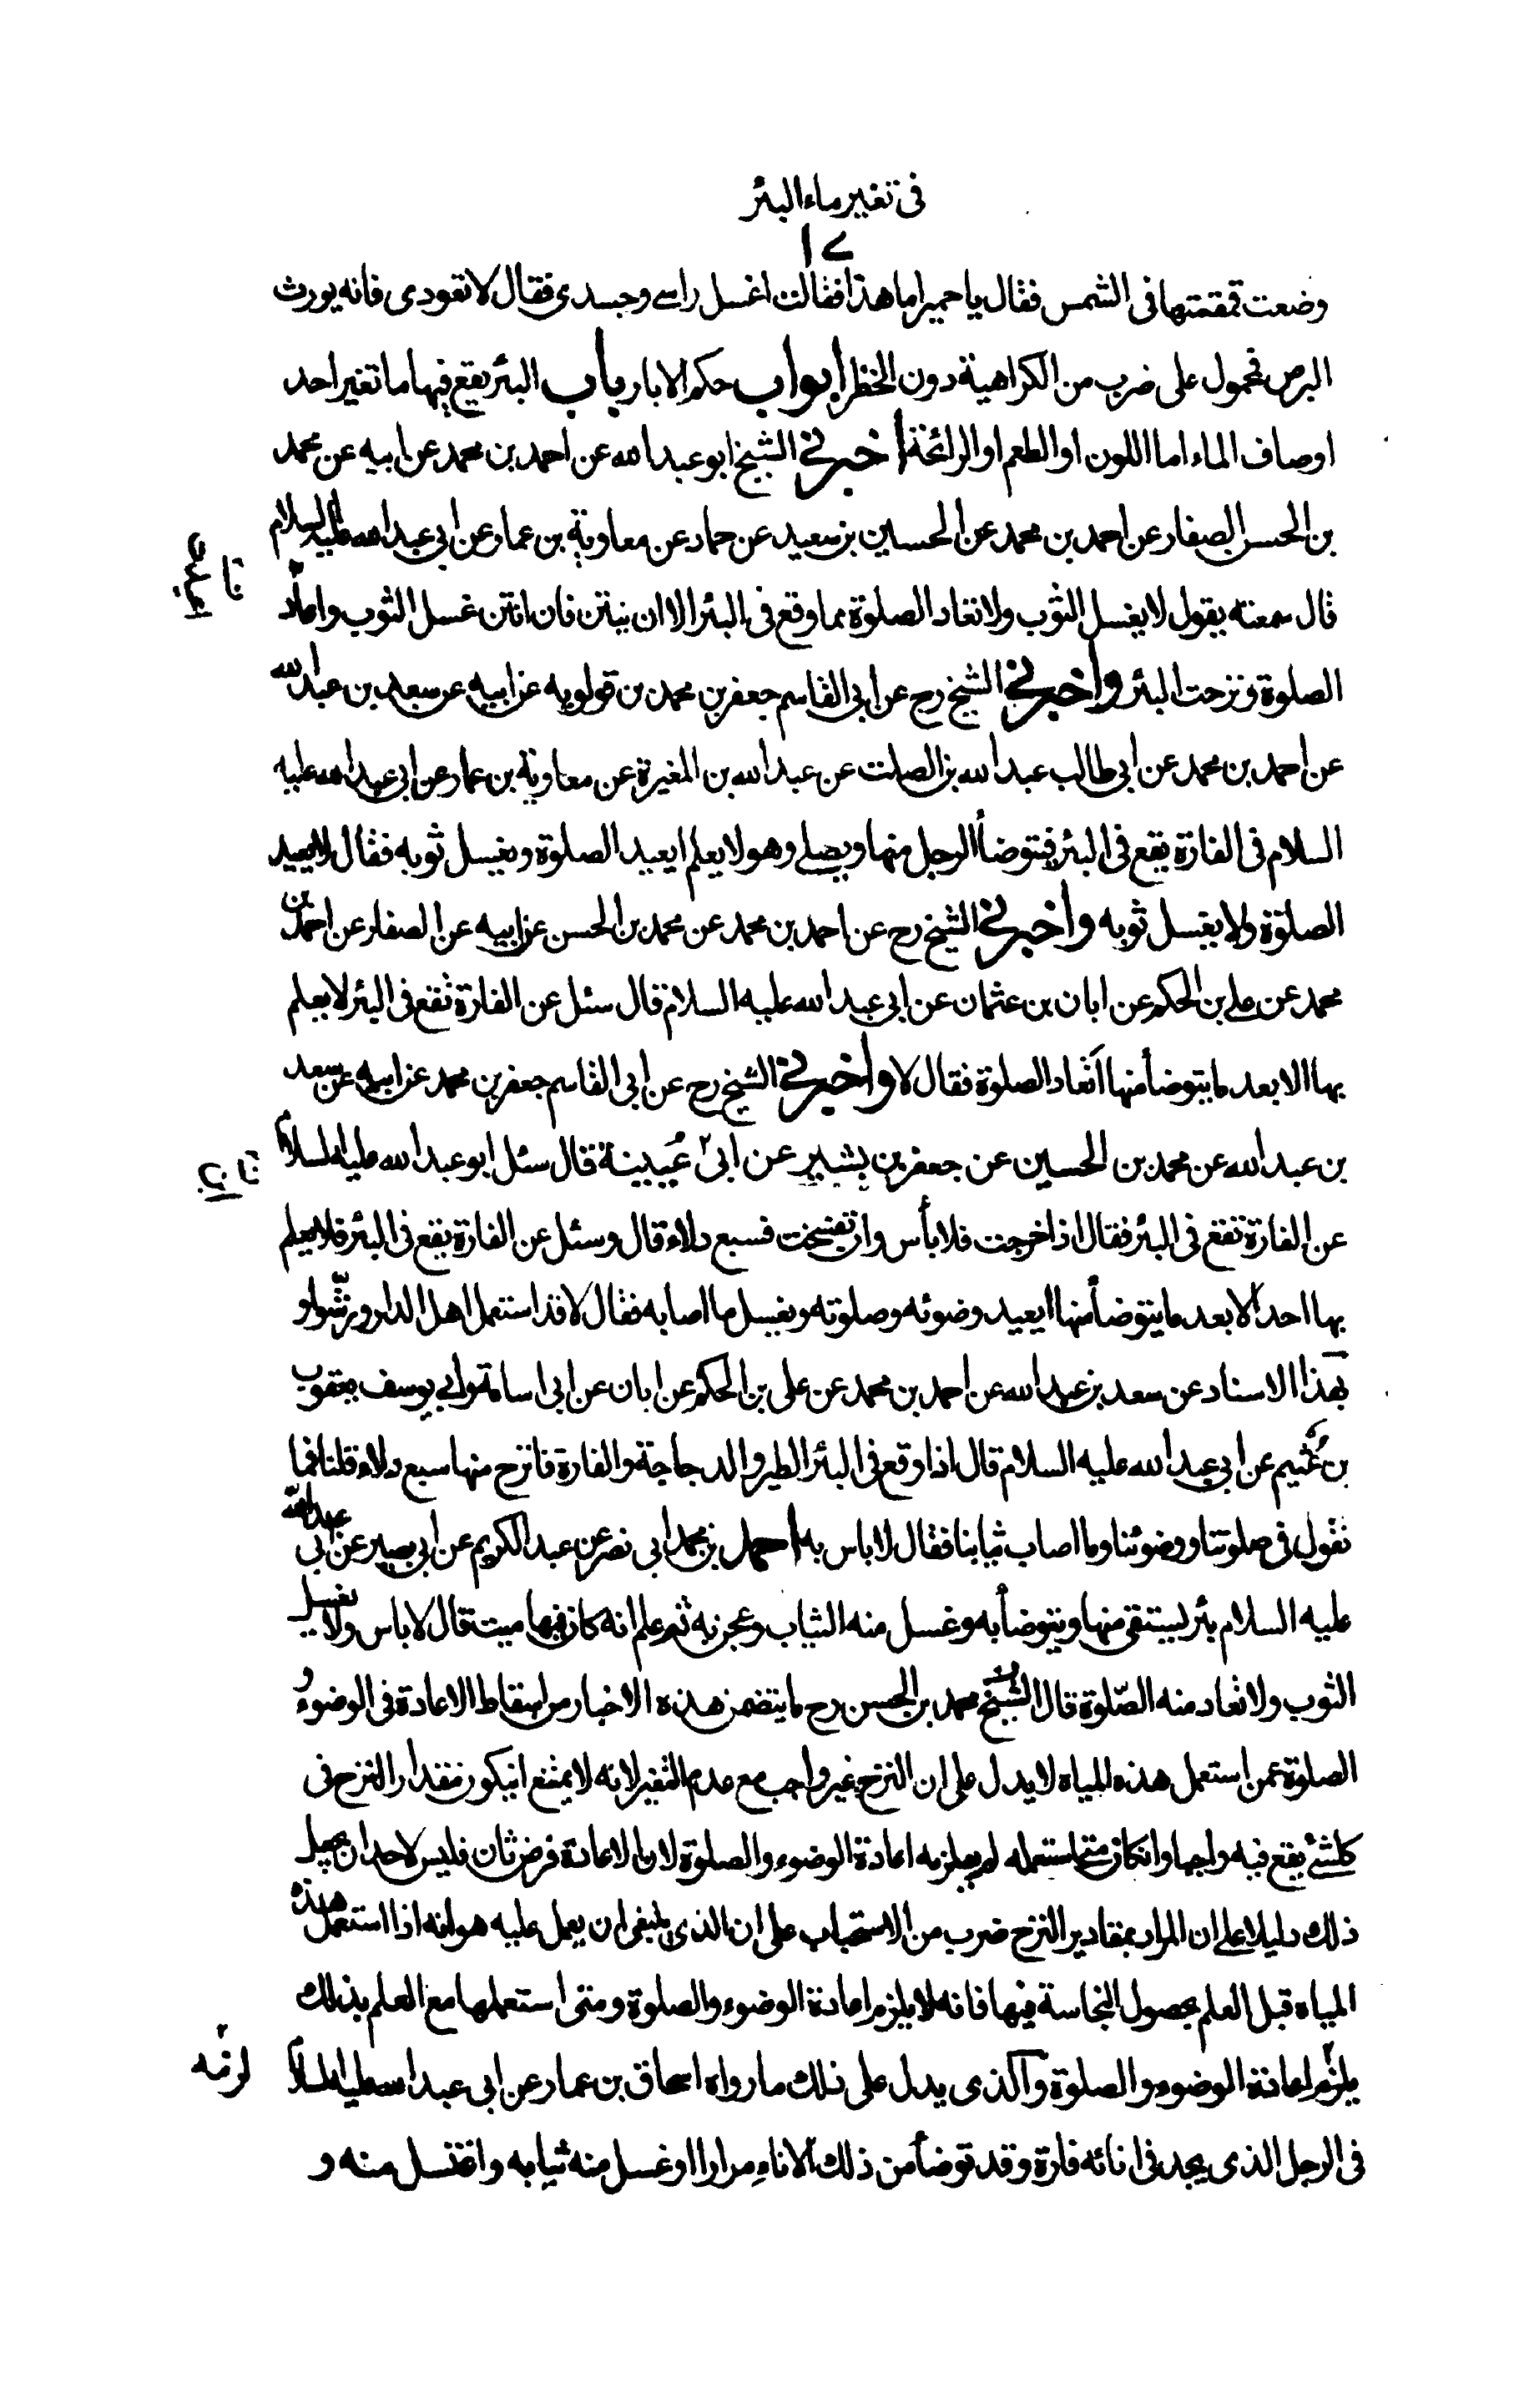 فى تغيير ماء البئر
١٧
وضعت قمقمتها فى الشمس فقال يا حميرا ما هذا فقالت اغسل راسى وجسدى فقال لا تعودى فانه يورث
البرص فمحمول على ضرب من الكراهية دون الحظر ابواب حكم الابار باب البئر يقع فيها ما تغير احد
اوصاف الماء اما اللون او الطعم او الرائحة اخبرنى الشيخ ابو عبد الله عن احمد بن محمد عن ابيه عن محمد
بن الحسن الصفار عن احمد بن محمد عن الحسين بن سعيد عن حماد عن معاوية بن عمار عن ابى عبد الله عليه السلام
قال سمعته يقول لا يغسل الثوب ولا تعاد الصلوة مما وقع فى البئر الا ان ينتن فان انتن غسل الثوب واعاد
الصلوة ونزحت البئر واخبرنى الشيخ رح عن ابى القاسم جعفر بن محمد بن قولويه عن ابيه عن سعد بن عبد الله
عن احمد بن محمد عن ابى طالب عبد الله بن الصلت عن عبد الله بن المغيرة عن معاوية بن عمار عن ابى عبد الله عليه
السلام فى الفارة يقع فى البئر فيتوضأ الرجل منها ويصلى وهو لا يعلم ايعيد الصلوة ويغسل ثوبه فقال لا يعيد
الصلوة ولا يغسل ثوبه واخبرنى الشيخ رح عن احمد بن محمد عن محمد بن الحسن عن ابيه عن الصفار عن احمد بن
محمد عن على بن الحكم عن ابان بن عثمان عن ابى عبد الله عليه السلام قال سئل عن الفارة تقع فى البئر لا يعلم
بها الا بعد ما يتوضأ منها اتعاد الصلوة فقال لا واخبرنى الشيخ رح عن ابى القاسم جعفر بن محمد عن ابيه عن سعد
بن عبد الله عن محمد بن الحسين عن جعفر بن بشير عن ابى عُيَيينة قال سئل ابو عبد الله عليه السلام
عن الفارة تقع فى البئر فقال اذا خرجت فلا بأس وان تفسخت فسبع دلاء قال وسئل عن الفارة يقع فى البئر فلا يعلم
بها احد الا بعد ما يتوضأ منها ايعيد وضوئه وصلوته ويغسل ما اصابه فقال لا قد استعمل اهل الدار ورشّوا و
بهذا الاسناد عن سعد بن عبد الله عن احمد بن محمد عن على بن الحكم عن ابان عن ابى اسامة وابى يوسف يعقوب
بن عُثيم عن ابى عبد الله عليه السلام قال اذا وقع فى البئر الطير والدجاجة والفارة فانزح منها سبع دلاء قلنا فما
تقول فى صلوتنا ووضوئنا وما اصاب ثيابنا فقال لا باس به احمد بن محمد ابى نصر عن عبد الكريم عن ابى بصير عن ابى عبد الله
عليه السلام بئر يستقى منها ويتوضأ به وغسل منه الثياب وعجن به ثم علم انه كان فيها ميت قال لا باس ولا يغسل
الثوب ولا تعاد منه الصّلوة قال الشيخ محمد بن الحسن رح ما يتضمن هذه الاخبار من اسقاط الاعادة فى الوضوء و
الصلوة عمن استعمل هذه المياه لا يدل على ان النزح غير واجب مع عدم التغير لانه لا يمتنع ان يكون مقدار النزح فى
كل شئ يقع فيه واجبا وان كان متى استعمله لم يلزمه اعادة الوضوء والصلوة لان الاعادة فرض ثان فليس لاحد ان يجعل
ذلك دليلا على ان المراد بمقادير النزح ضرب من الاستحباب على ان الذى ينبغى ان يعمل عليه هو انه اذا استعمل هذه
المياه قبل العلم بحصول النجاسة فيها فانه لا يلزم اعادة الوضوء والصلوة ومتى استعملها مع العلم بذلك
يلزم اعادة الوضوء والصلوة والذى يدل على ذلك ما رواه اسحاق بن عمار عن ابى عبد الله عليه السلام
لزمه
فى الرجل الذى يجد فى انائه فارة وقد توضأ من ذلك الاناء مرارا او غسل منه ثيابه واغتسل منه و